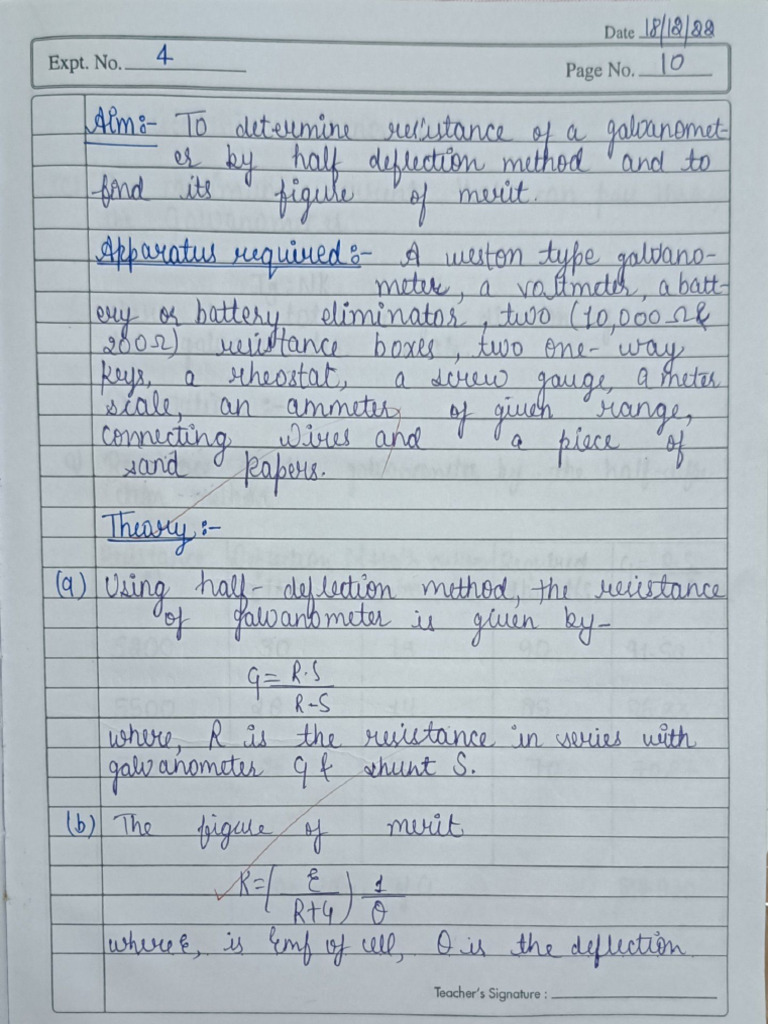 Date 18/12/22
Expt. No. 4
Page No. 10
Aim:- To determine resistance of a galvanomet-
er by half deflection method and to
find its figure of merit.
Apparatus required:- A weston type galvano-
meter, a voltmeter, a batt-
ery or battery eliminator, two (10,000 Ω &
200Ω) resistance boxes, two one-way
keys, a rheostat, a screw gauge, a meter
scale, an ammeter of given range,
connecting wires and a piece of
sand papers.
Theory:-
(a) Using half-deflection method, the resistance
of galvanometer is given by-
G = R.S
R-S
where, R is the resistance in series with
galvanometer G & shunt S.
(b) The figure of merit
K=(ε/R+G) 1/θ
where ε, is Emf of cell, θ is the deflection
Teacher's Signature :